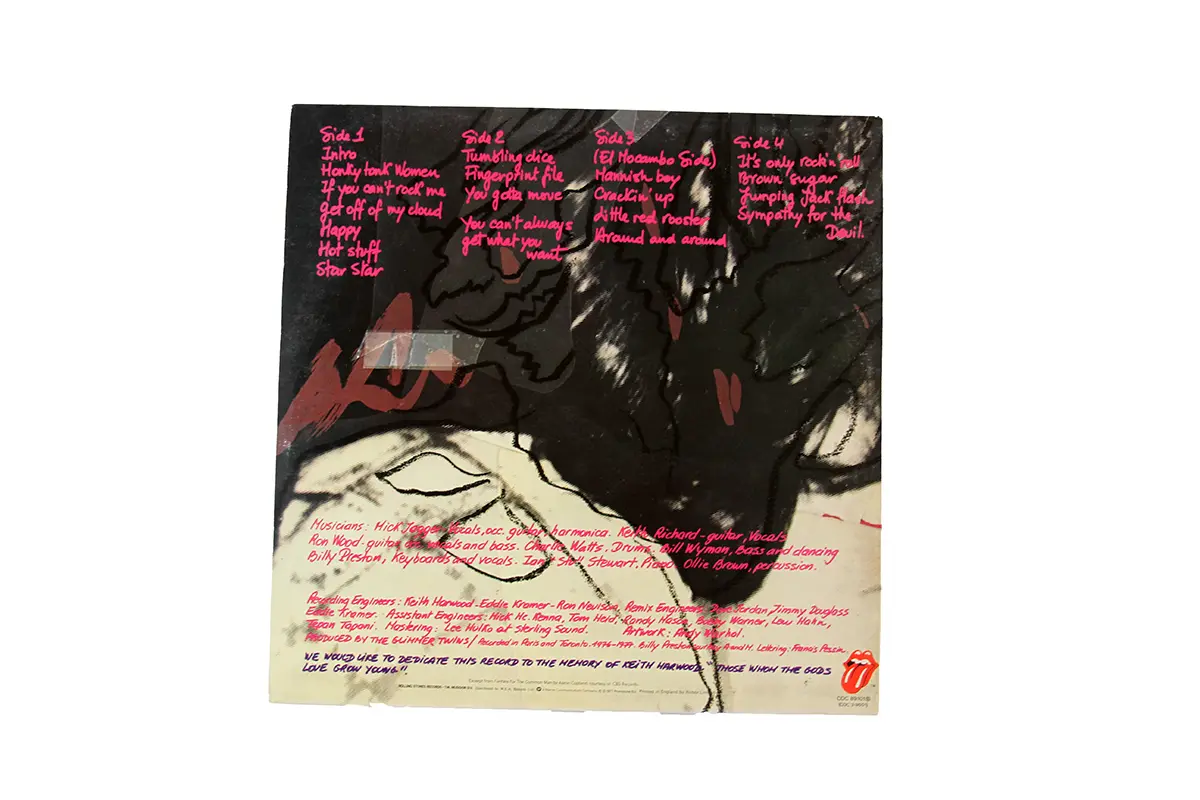 Side 1
Intro
Honky tonk Women
If you can't rock me
get off of my cloud
Happy
Hot stuff
Star Star
Side 2
Tumbling dice
Fingerprint file
You gotta move
You can't always
get what you
want
Side 3
(El Mocambo Side)
Mannish boy
Crackin up
Little red rooster
Around and around
Side 4
It's only rock'n roll
Brown sugar
Jumping Jack flash
Sympathy for the
Devil.
Musicians: Mick Jagger Vocals, acc. guitar harmonica. Keith Richard - guitar, Vocals
Ron Wood - guitar vocals and bass. Charlie Watts, Drums. Bill Wyman, Bass and dancing
Billy Preston, Keyboards and vocals. Ian Stewart, Piano Ollie Brown, percussion.
Recording Engineers: Keith Harwood - Eddie Kramer - Ron Nevison, Remix Engineers, Dave Jordan, Jimmy Douglass
Eddie Kramer. Assistant Engineers: Mick Mc.Kenna, Tom Heid, Randy Mason, Bobby Warner, Lew Hahn,
Tapan Tapani. Mastering: Lee Hulko at Sterling Sound. Artwork: Andy Warhol.
PRODUCED BY THE GLIMMER TWINS/ Recorded in Paris and Toronto. 1976-1977. Billy Preston courtesy A and M. Lettering: Francis Pessin.
WE WOULD LIKE TO DEDICATE THIS RECORD TO THE MEMORY OF KEITH HARWOOD. "THOSE WHOM THE GODS
LOVE GROW YOUNG".
Excerpt from Fanfare for The Common Man by Aaron Copland courtesy of CBS Records